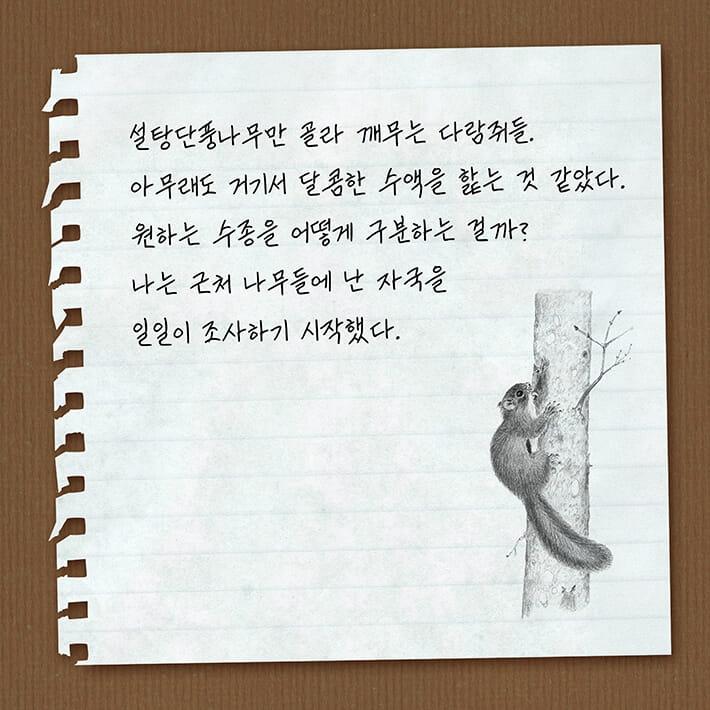 설탕단풍나무만 골라 깨무는 다람쥐들.
아무래도 거기서 달콤한 수액을 핥는 것 같았다.
원하는 수종을 어떻게 구분하는 걸까?
나는 근처 나무들에 난 자국을
일일이 조사하기 시작했다.